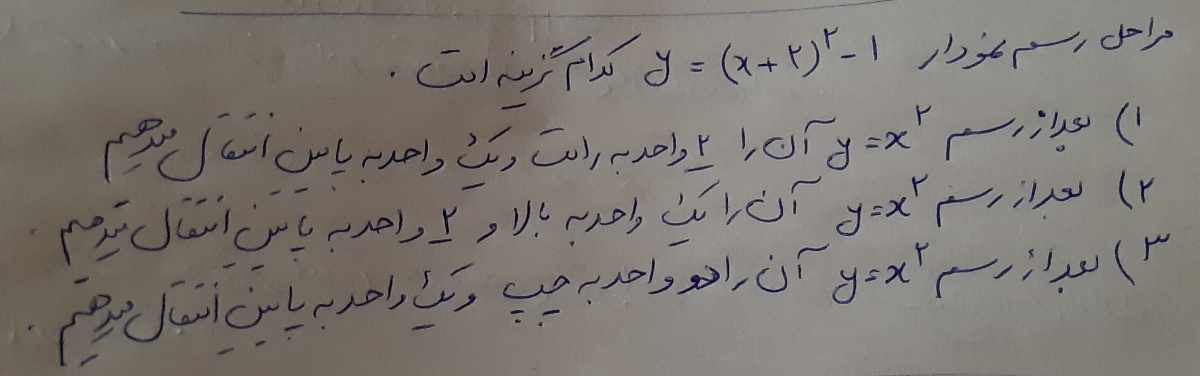 مراحل رسم نمودار y = (x+۲)^۲ - ۱ کدام گزینه است .
۱) بعد از رسم y=x^۲ آن را ۲ واحد به راست و یک واحد به پایین انتقال میدهیم
۲) بعد از رسم y=x^۲ آن را یک واحد به بالا و ۲ واحد به پایین انتقال میدهیم .
۳) بعد از رسم y=x^۲ آن را دو واحد به چپ و یک واحد به پایین انتقال میدهیم .